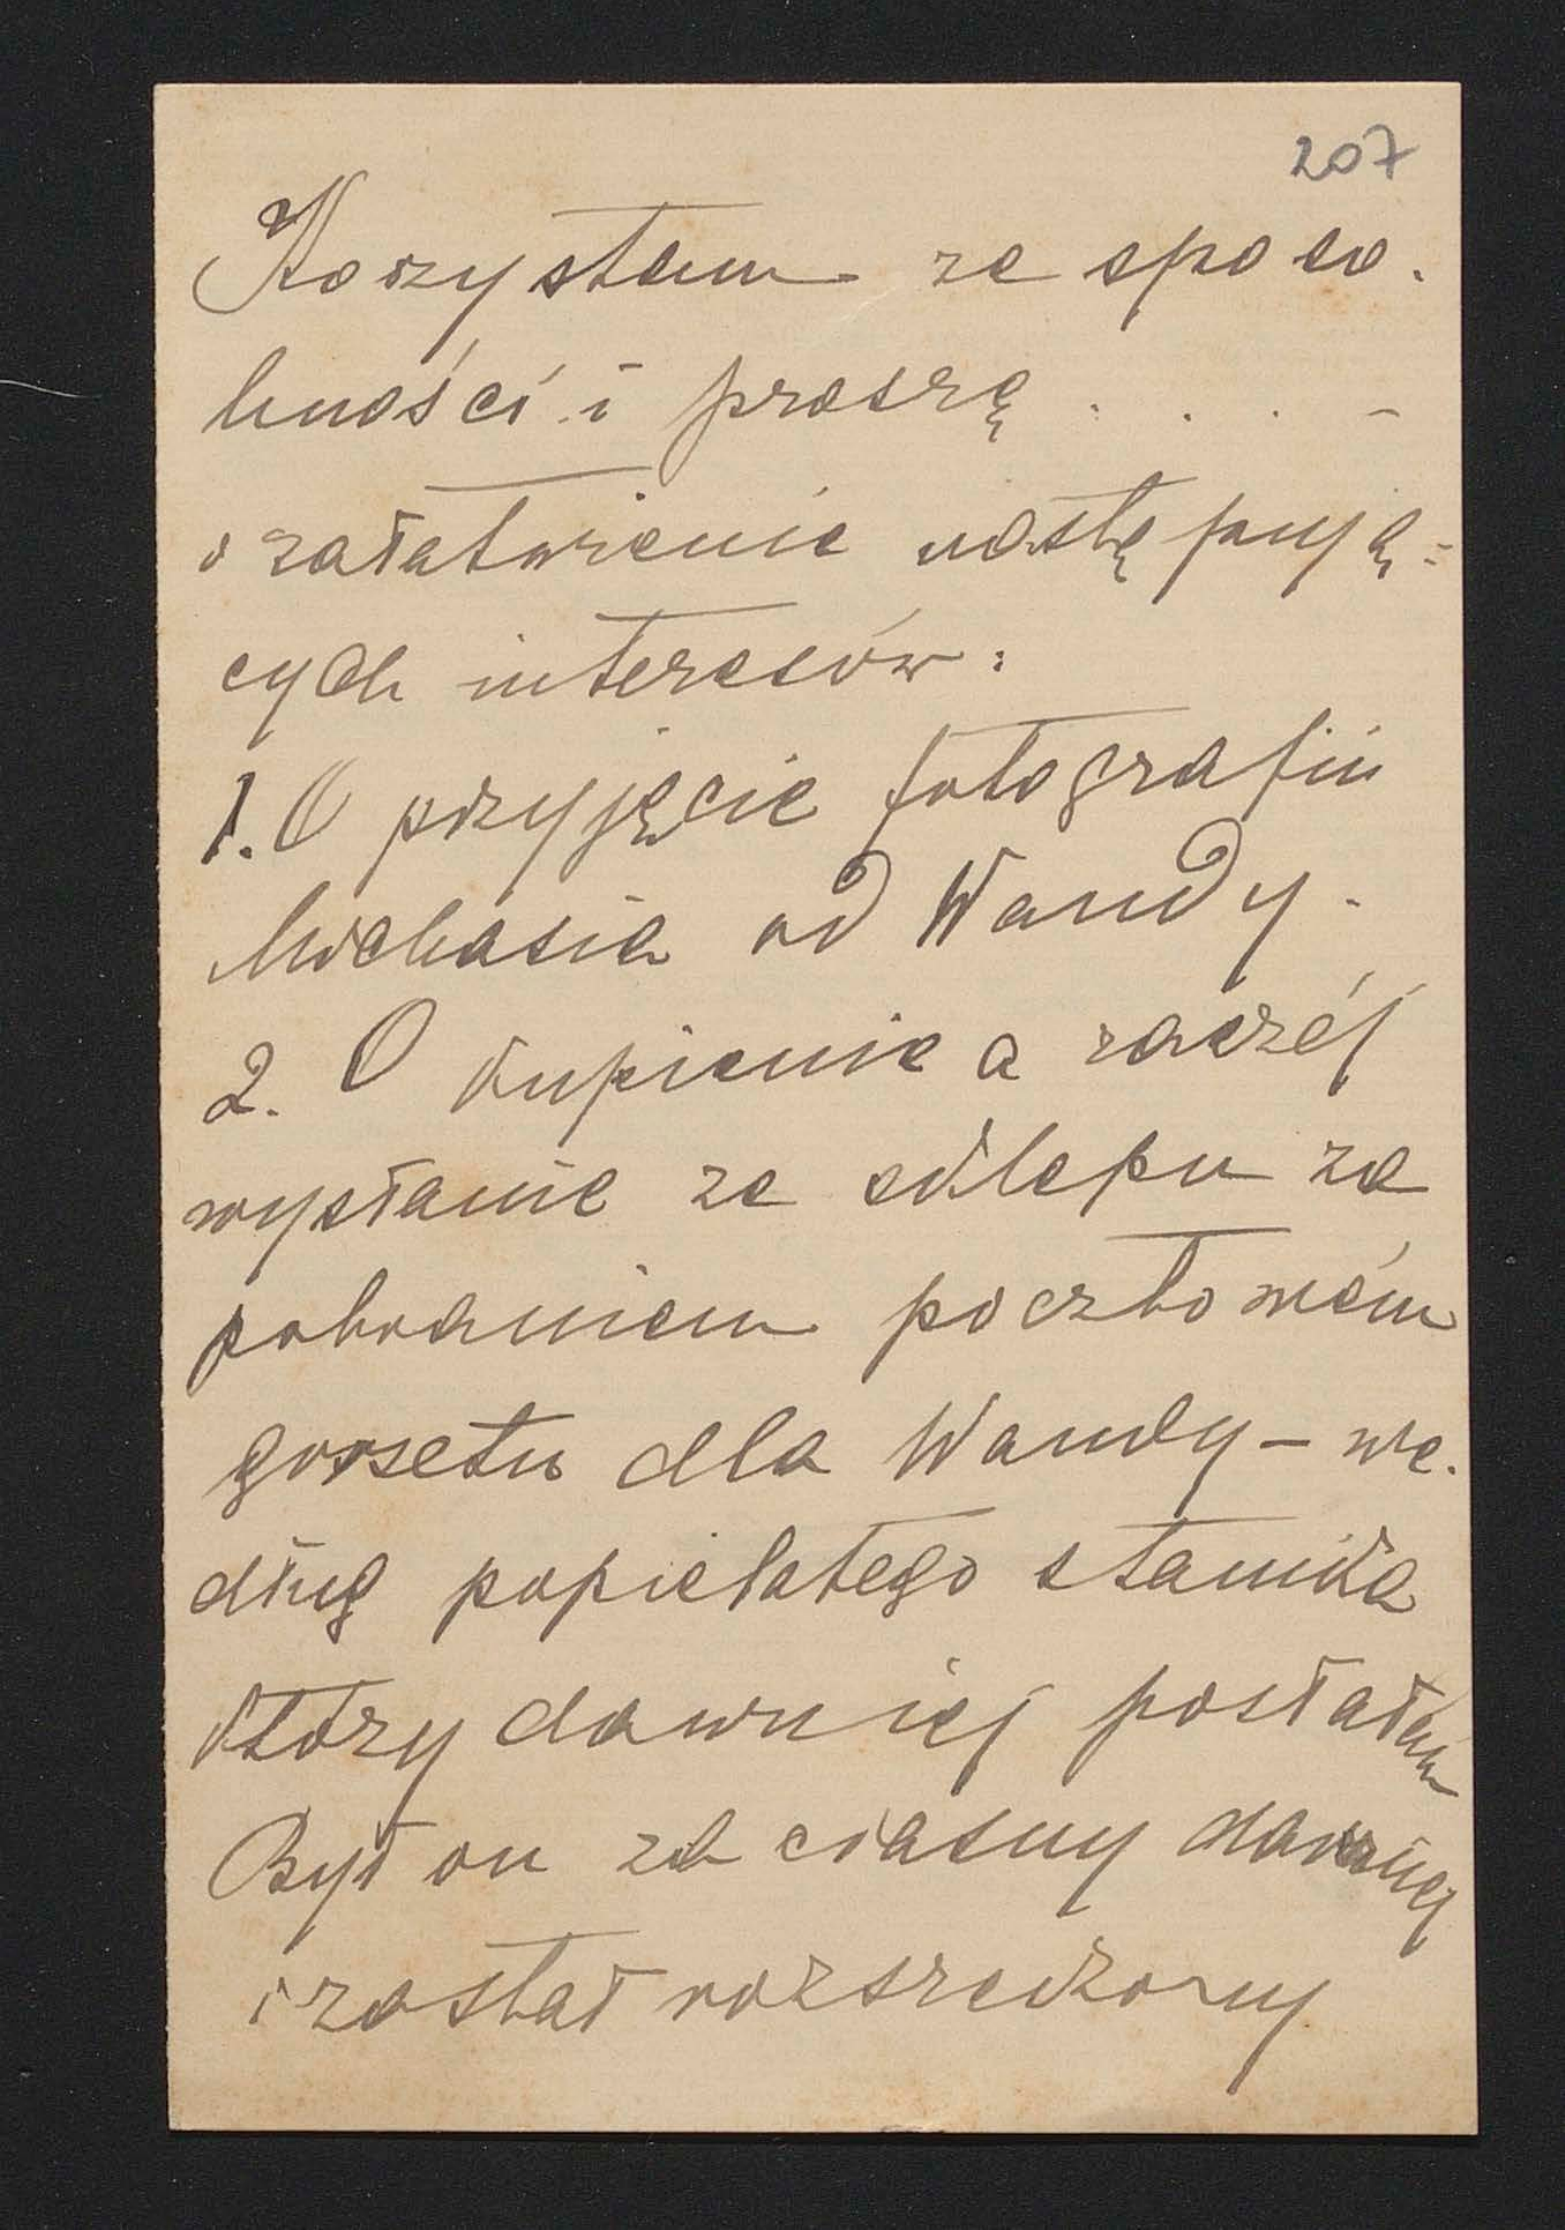 207
Korzystam ze sposo-
bności i proszę . . . . -
o załatwienie następują=
cych interesów:
1. O przyjęcie fotografii
Michasia od Wandy.
2. O kupienie a raczéj
wysłanie ze sklepu za
pobraniem pocztowém
gorsetu dla Wandy – we-
dług popielatego stanika
który dawniej posłałam
Był on za ciasny dawniej
i został rozszerzony